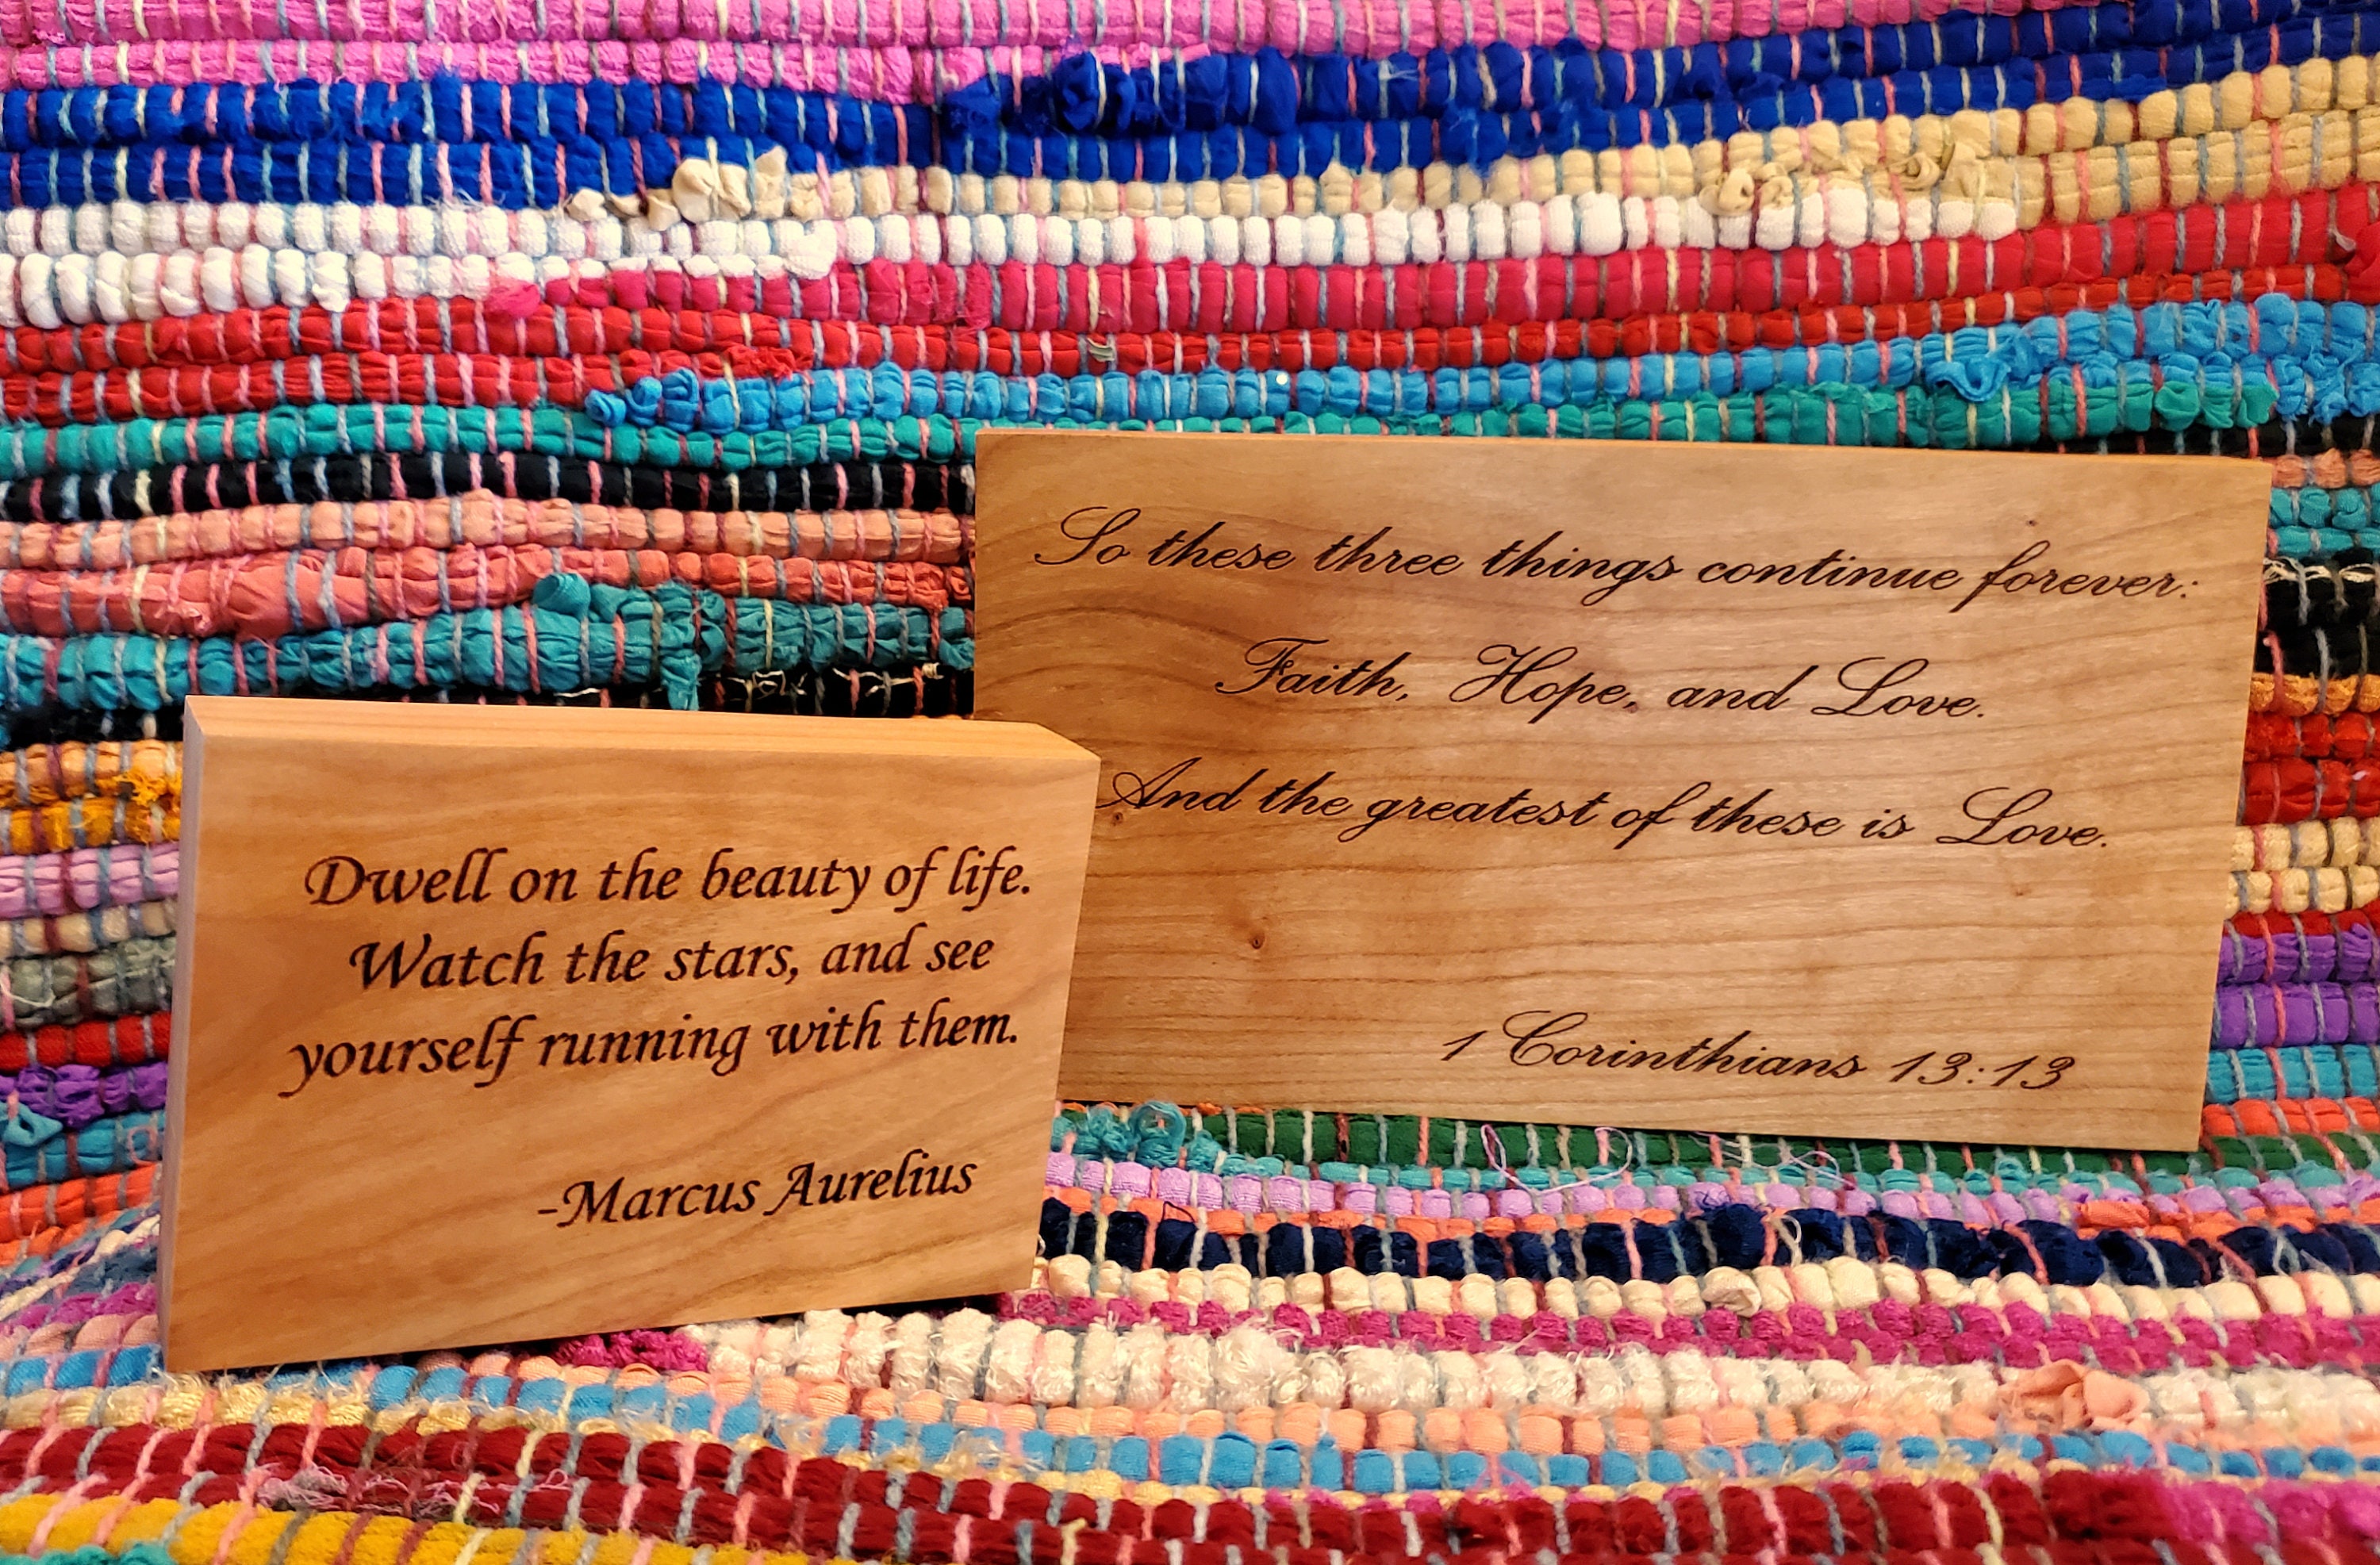 So these three things continue forever:
Faith, Hope, and Love.
And the greatest of these is Love.
1 Corinthians 13:13
Dwell on the beauty of life.
Watch the stars, and see
yourself running with them.
-Marcus Aurelius